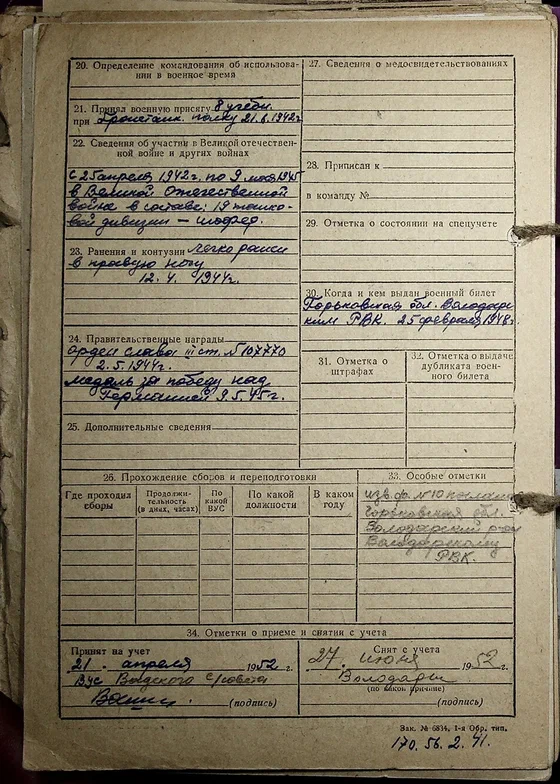 20. Определение командования об использова-
нии в военное время
21. Принял военную присягу 8 учебн.
при Бронетанк. полку 21.6.1942г
22. Сведения об участии в Великой отечествен-
ной войне и других войнах
с 25 апреля 1942г. по 9 мая 1945
в Великой Отечественной
войне в составе: 19 танко-
вой дивизии – шофер.
23. Ранения и контузии легко ранен
в правую ногу
12. 4. 1944г.
24. Правительственные награды
орден славы III ст. № 107770
2.5.1944г.
медаль за победу над
Германией 9.5.45г.
25. Дополнительные сведения
27. Сведения о медосвидетельствованиях
28. Приписан к
в команду №
29. Отметка о состоянии на спецучете
30. Когда и кем выдан военный билет
Горьковская обл. Володарс
ким РВК. 25 февраля 1948г.
31. Отметка о
штрафах
32. Отметка о выдаче
дубликата воен-
ного билета
26. Прохождение сборов и переподготовки
Где проходил
сборы
Продолжи-
тельность
(в днях, часах)
По
какой
ВУС
По какой
должности
В каком
году
33. Особые отметки
изв. ф. № 10
Горьковская обл.
Володарский р-он
Володарскому
РВК.
34. Отметки о приеме и снятии с учета
Принят на учет
21. апреля 1952 г.
ВУС с/совета
(подпись)
Снят с учета
27. июня 1952 г.
Володарск
(по какой причине)
(подпись)
Зак. № 6834, 1-я Обр. тип.
170. 56. 2. 41.